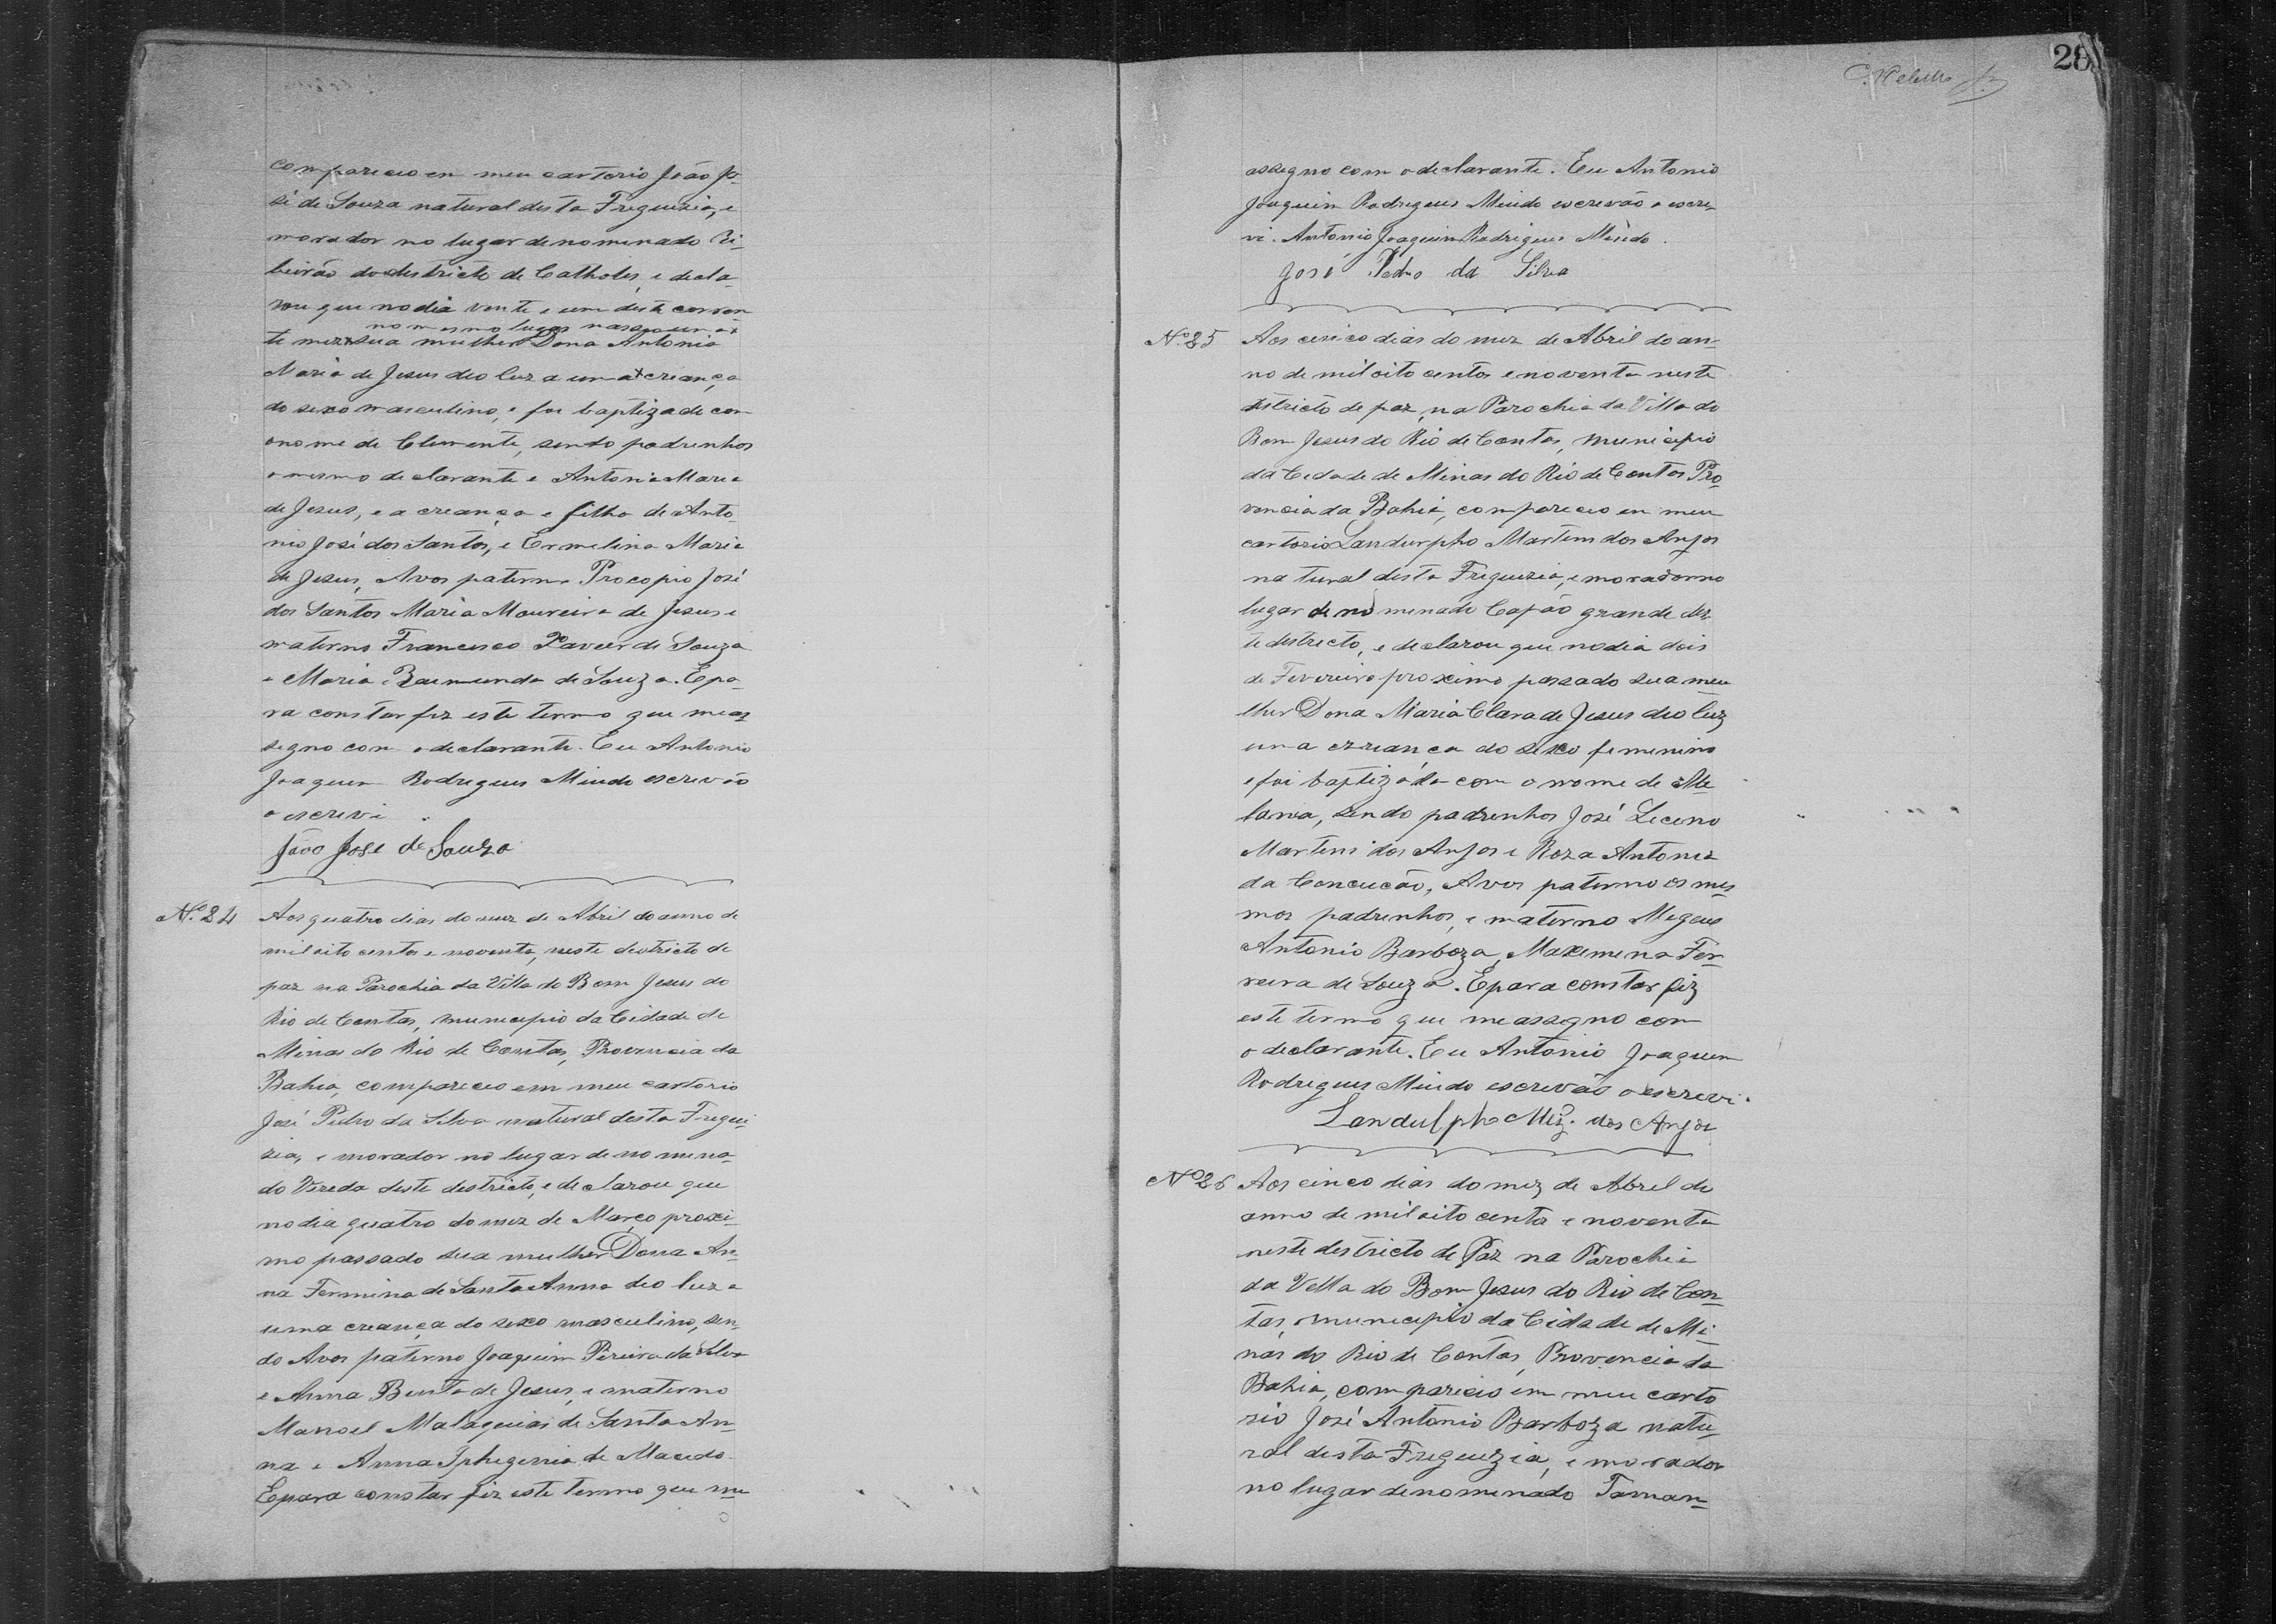 compareceo em meu cartorio João Jo-
sé de Souza natural desta Freguezia, e
morador no lugar denominado Ri-
beirão do destricto de Catholes, e decla-
rou que no dia vente e um deste corren
no mesmo lugar nasceo um
te mez sua mulher Dona Antonia
Maria de Jesus deo luz a uma creança
do sexo masculino, e foi baptizado com
o nome de Clemente, sendo padrenhos
o mesmo declarante e Antonia Maria
de Jesus, e a creança e filho de Anto-
nio José dos Santos, e Ermelina Maria
de Jesus, Avos paterno Procopio José
dos Santos Maria Moureira de Jesus e
materno Francisco Xavier de Souza
e Maria Raimunda de Souza. E pa-
ra constar fiz este termo que me as
segno com o declarante. Eu Antonio
Joaquim Rodrigues Miudo escrevão
o escrevi.
João Jose de Souza
Nº. 24
Aos quatro dias do mez de Abril do anno de
mil oito centos e noventa, neste destricto de
paz na Parochia da Villa do Bom Jesus do
Rio de Contas, municipio da Cidade de
Minas do Rio de Contas, Provencia da
Bahia, compareceo em meu cartorio
José Pedro da Silva natural desta Fregue-
zia, e morador no lugar denomina-
do Vereda deste destricto, e declarou que
no dia quatro do mez de Março proxi-
mo passado sua mulher Dona An-
na Fermina de Santa Anna deo luz a
uma creança do sexo masculino, sen-
do Avos paterno Joaquim Pereira da Silva
e Anna Bento de Jesus, e materno
Manoel Malaquias de Santa An-
na e Anna Iphegenia de Macedo.
E para constar fiz este termo que me
28
assegno com o declarante. Eu Antonio
Joaquim Rodrigues Miudo escrevão o escre-
vi. Antonio Joaquim Rodrigues Miudo.
José Pedro da Silva
Nº. 25
Aos cinco dias do mez de Abril do an-
no de mil oito centos e noventa neste
destricto de paz, na Parochia da Villa do
Bom Jesus do Rio de Contas, municipio
da Cidade de Minas do Rio de Contas Pro
vencia da Bahia, compareceo em meu
cartorio Landurpho Martins dos Anjos
natural desta Freguezia, e morador no
lugar denominado Capão grande des-
te destricto, e declarou que no dia dois
de Fevereiro proximo passado sua mu
lher Dona Maria Clara de Jesus deo luz
uma crreança do sexo femenino
e foi baptizada com o nome de Me
lania, sendo padrenhos José Leceno
Martins dos Anjos e Roza Antonia
da Conceicão, Avos paterno os mes
mos padrenhos, e materno Megeus
Antonio Barboza, Maxemena Fer-
reira de Souza. E para constar fiz
este termo que me assegno com
o declarante. Eu Antonio Joaquim
Rodrigues Miudo escrevão o escrevi.
Landulpho Miz. dos Anjos
Nº 26
Aos cinco dias do mez de Abrel do
anno de mil oito centos e noventa
neste destricto de Paz na Parochia
da Vella do Bom Jesus do Rio de Con-
tas, municipio da Cidade de Mi-
nas do Rio de Contas, Provencia da
Bahia, compareceo em meu carto
rio José Antonio Barboza natu-
ral desta Freguezia, e morador
no lugar denomenado Taman-